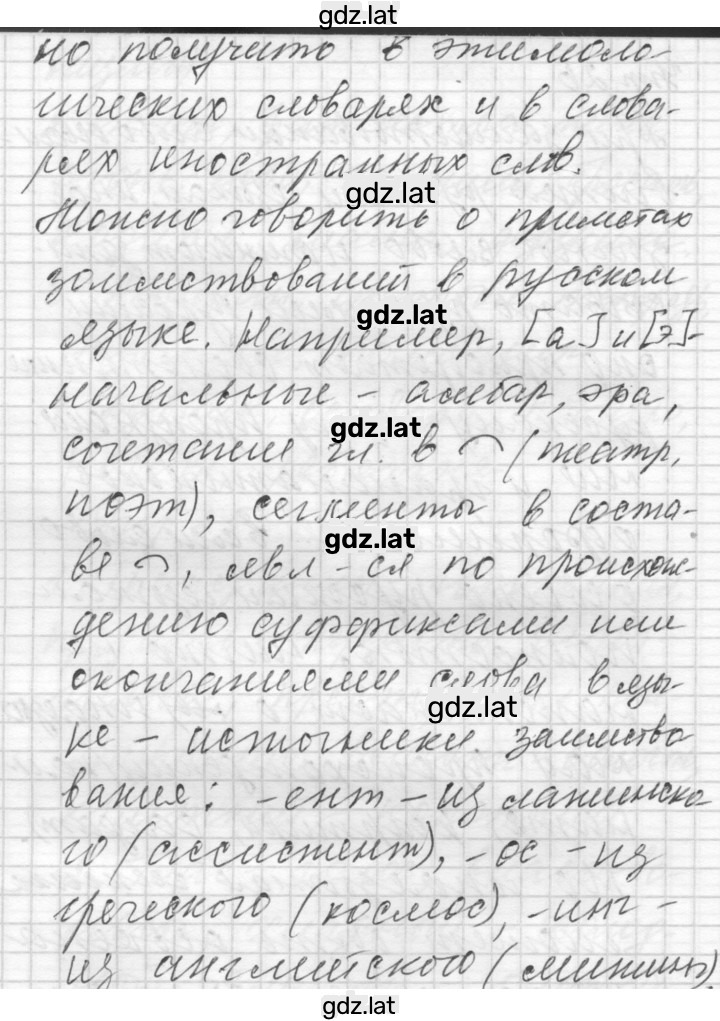 gdz.lat
но получить в этимоло-
гических словарях и в слова-
рях иностранных слов.
gdz.lat
Можно говорить о приметах
заимствований в русском
gdz.lat
языке. Например, [а] и [э]-
начальные - амбар, эра,
gdz.lat
сочетание гл. в ⌒ (театр,
поэт), сегменты в соста-
gdz.lat
ве ⌒, явл-ся по происхож-
дению суффиксами или
окончаниями слова в язы-
gdz.lat
ке - источнике заимство
вания: -ент - из латинско-
го (ассистент), -ос - из
греческого (космос), -инг -
из английского (митинг).
gdz.lat